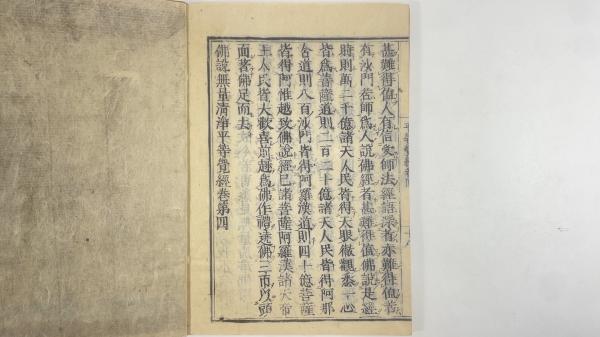 甚難得值人有信受師法經語深者亦難得值若
有沙門若師為人說佛經者甚難得值佛說是經
時則萬二千億諸天人民皆得天眼徹視悉一心
皆為菩薩道則二百二十億諸天人民皆得阿那
含道則八百沙門皆得阿羅漢道則四十億菩薩
皆得阿惟越致佛說經已諸菩薩阿羅漢諸天帝
王人民皆大歡喜前趣為佛作禮遶佛三帀以頭
面著佛足而去
佛說無量清淨平等覺經卷第四